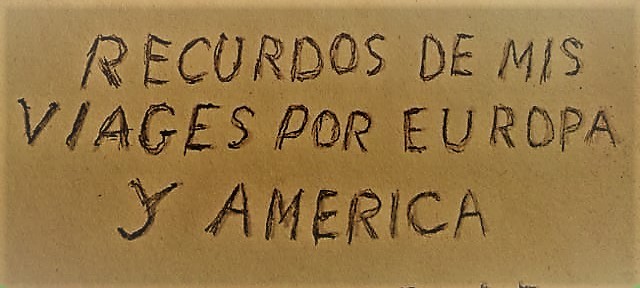 RECURDOS DE MIS
VIAGES POR EUROPA
Y AMERICA